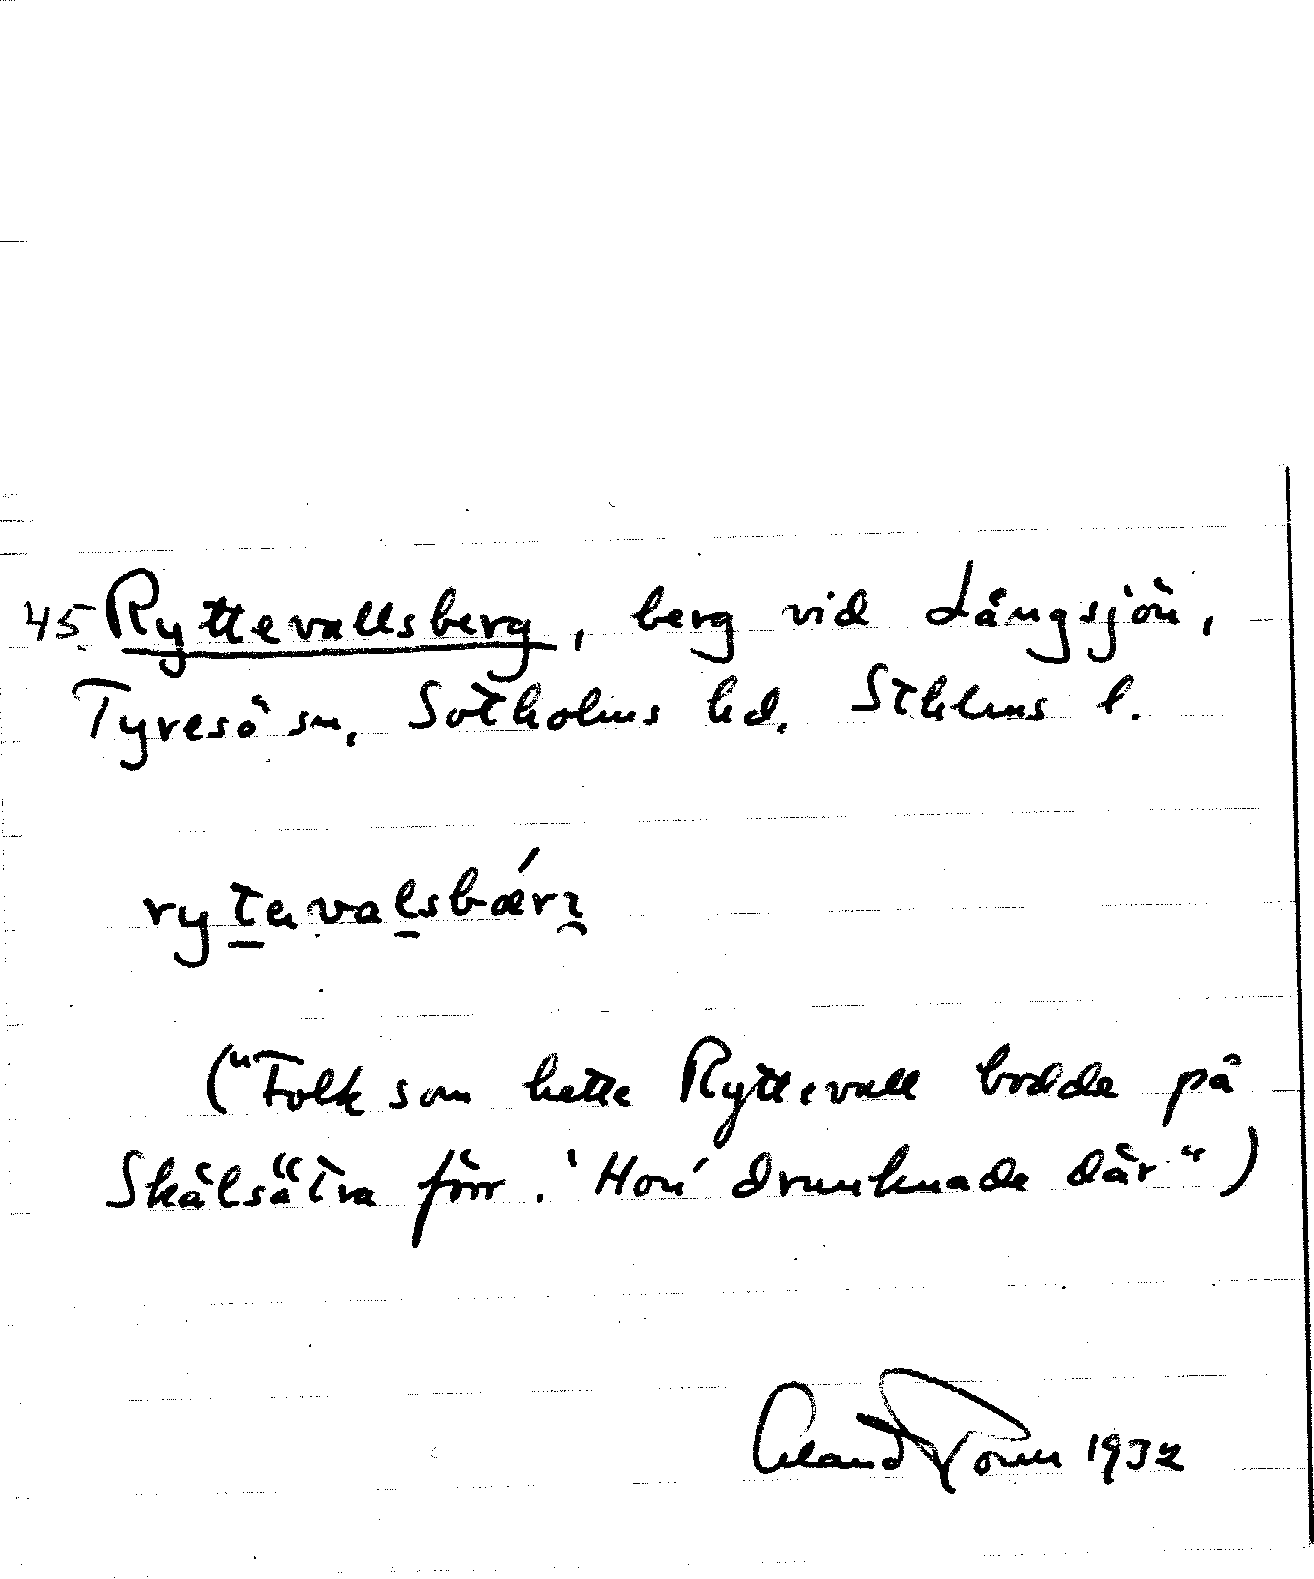 45 Ryttevallsberg, berg vid Långsjön,
Tyresö sn, Sotholms hd. Sthlms l.
rytavalsbǽrz
("Folk som hette Ryttevall bodde på
Skälsätra förr. 'Hon' drunknade där")
1932